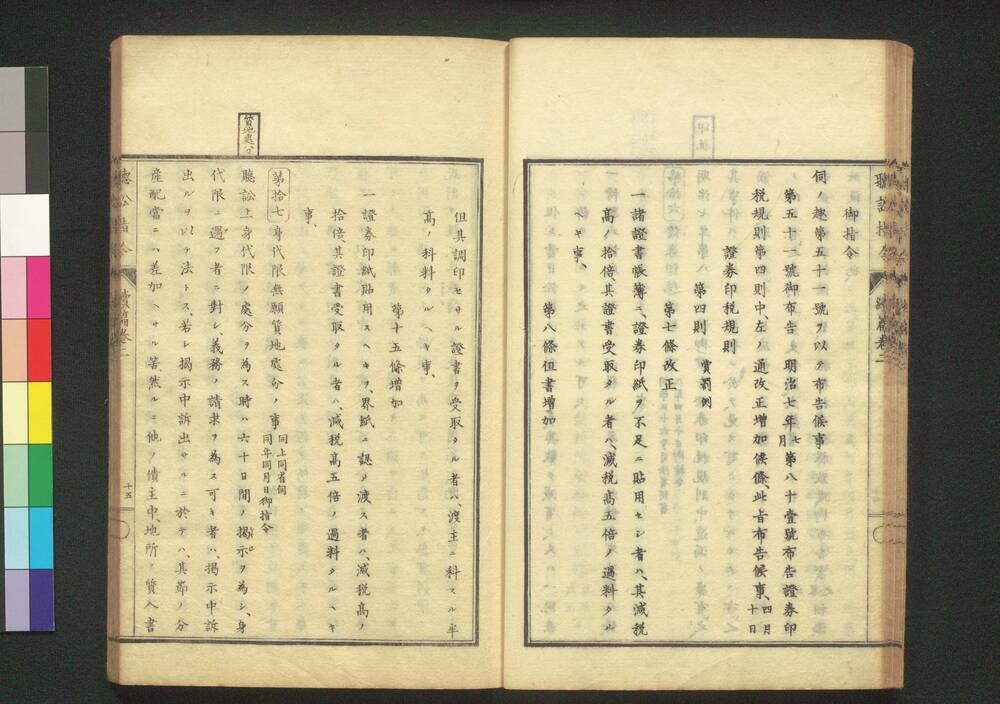 御指令
伺ノ趣第五十一號ヲ以テ布告候事
第五十一號御布告 明治七年七月第八十壹號布告證券印
税規則第四則中、左ノ通改正増加候條、此旨布告候事、四月十日
證券印税規則
第四則 賞罰例
第七條改正
一諸證書帳簿ニ、證券印紙ヲ不足ニ貼用セシ者ハ、其減税
高ノ拾倍、其證書受取タル者ハ、減税高五倍ノ過料タル
ヘキ事、
第八條但書増加
但其調印セサル證書ヲ受取タル者ハ、渡主ニ科スル半
高ノ科料タルヘキ事、
第十五條増加
一證券印紙貼用スヘキヲ、界紙ニ認メ渡ス者ハ、減税高ノ
拾倍、其證書受取タル者ハ、減税高五倍ノ過料タルヘキ
事、
質地處分
第拾七 身代限無願質地處分ノ事 同上同省伺 同年同月日御指令
聽訟上身代限ノ處分ヲ為ス時ハ六十日間ノ掲示ヲ為シ、身
代限ニ遇フ者ニ對シ、義務ノ請求ヲ為ス可キ者ハ、掲示中訴
出ルヲ以テ法トス、若シ掲示中訴出サルニ於テハ、其節ノ分
産配當ニハ差加ヘサル筈、然ルニ他ノ債主中、地所ノ質入書
聽訟指令 續篇卷二
十五